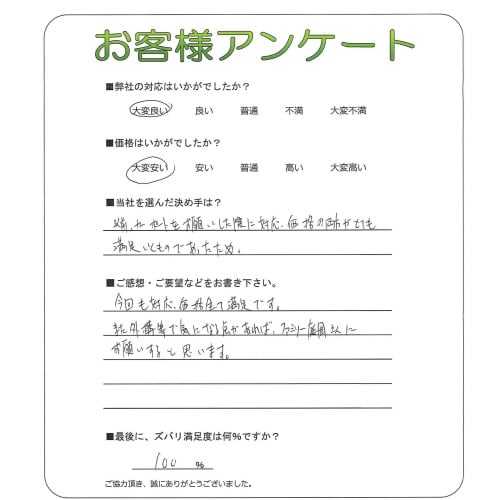 お客様アンケート
■弊社の対応はいかがでしたか?
大変良い 良い 普通 不満 大変不満
■価格はいかがでしたか?
大変安い 安い 普通 高い 大変高い
■当社を選んだ決め手は?
以前、カーポートをお願いした際に対応、価格の両方がとても
満足いくものであったため。
■ご感想・ご要望などをお書き下さい。
今回も対応、価格全て満足です。
又、外構等で気になる点があれば、ファミリー庭園さんに
お願いすると思います。
■最後に、ズバリ満足度は何%ですか?
100 %
ご協力頂き、誠にありがとうございました。